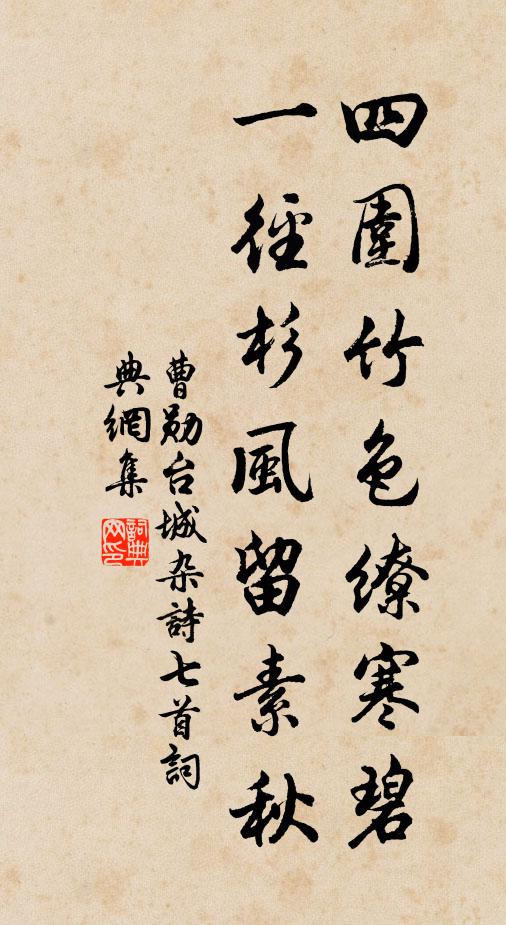 四圍竹色繚寒碧
一徑杉風留素秋
曹勛台城杂詩七首詞
典網集
詞典網印